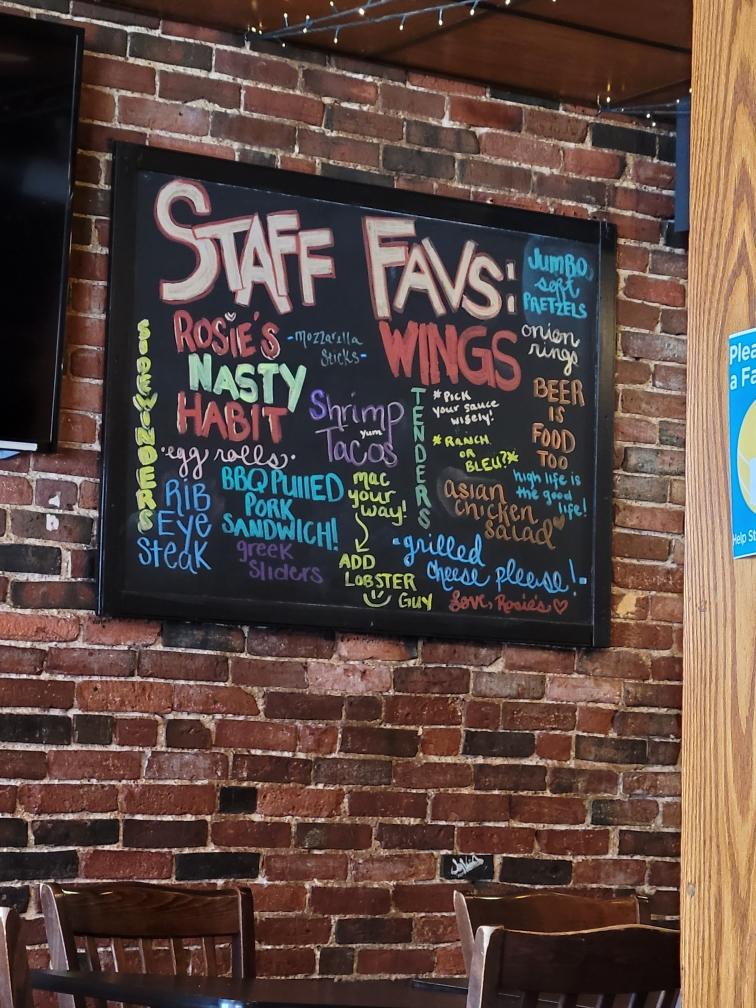 STAFF FAVS:
JUMBO
soft
PRETZELS
SIDEWINDERS
ROSIE'S
NASTY
HABIT
-mozzarella
sticks-
WINGS
onion
rings
·egg rolls·
Shrimp
yum
Tacos
TENDERS
*PICK
your sauce
wisely!
*RANCH
OR
BLEU?*
BEER
IS
FOOD
TOO
high life is
the good
life!
RIB
Eye
Steak
BBQ PUllED
PORK
SANDWICH!
greek
sliders
mac
your
way!
ADD
LOBSTER
GUY
asian
chicken
salad
·grilled
cheese please!·
Love, Rosie's
Plea
a Fa
Help St